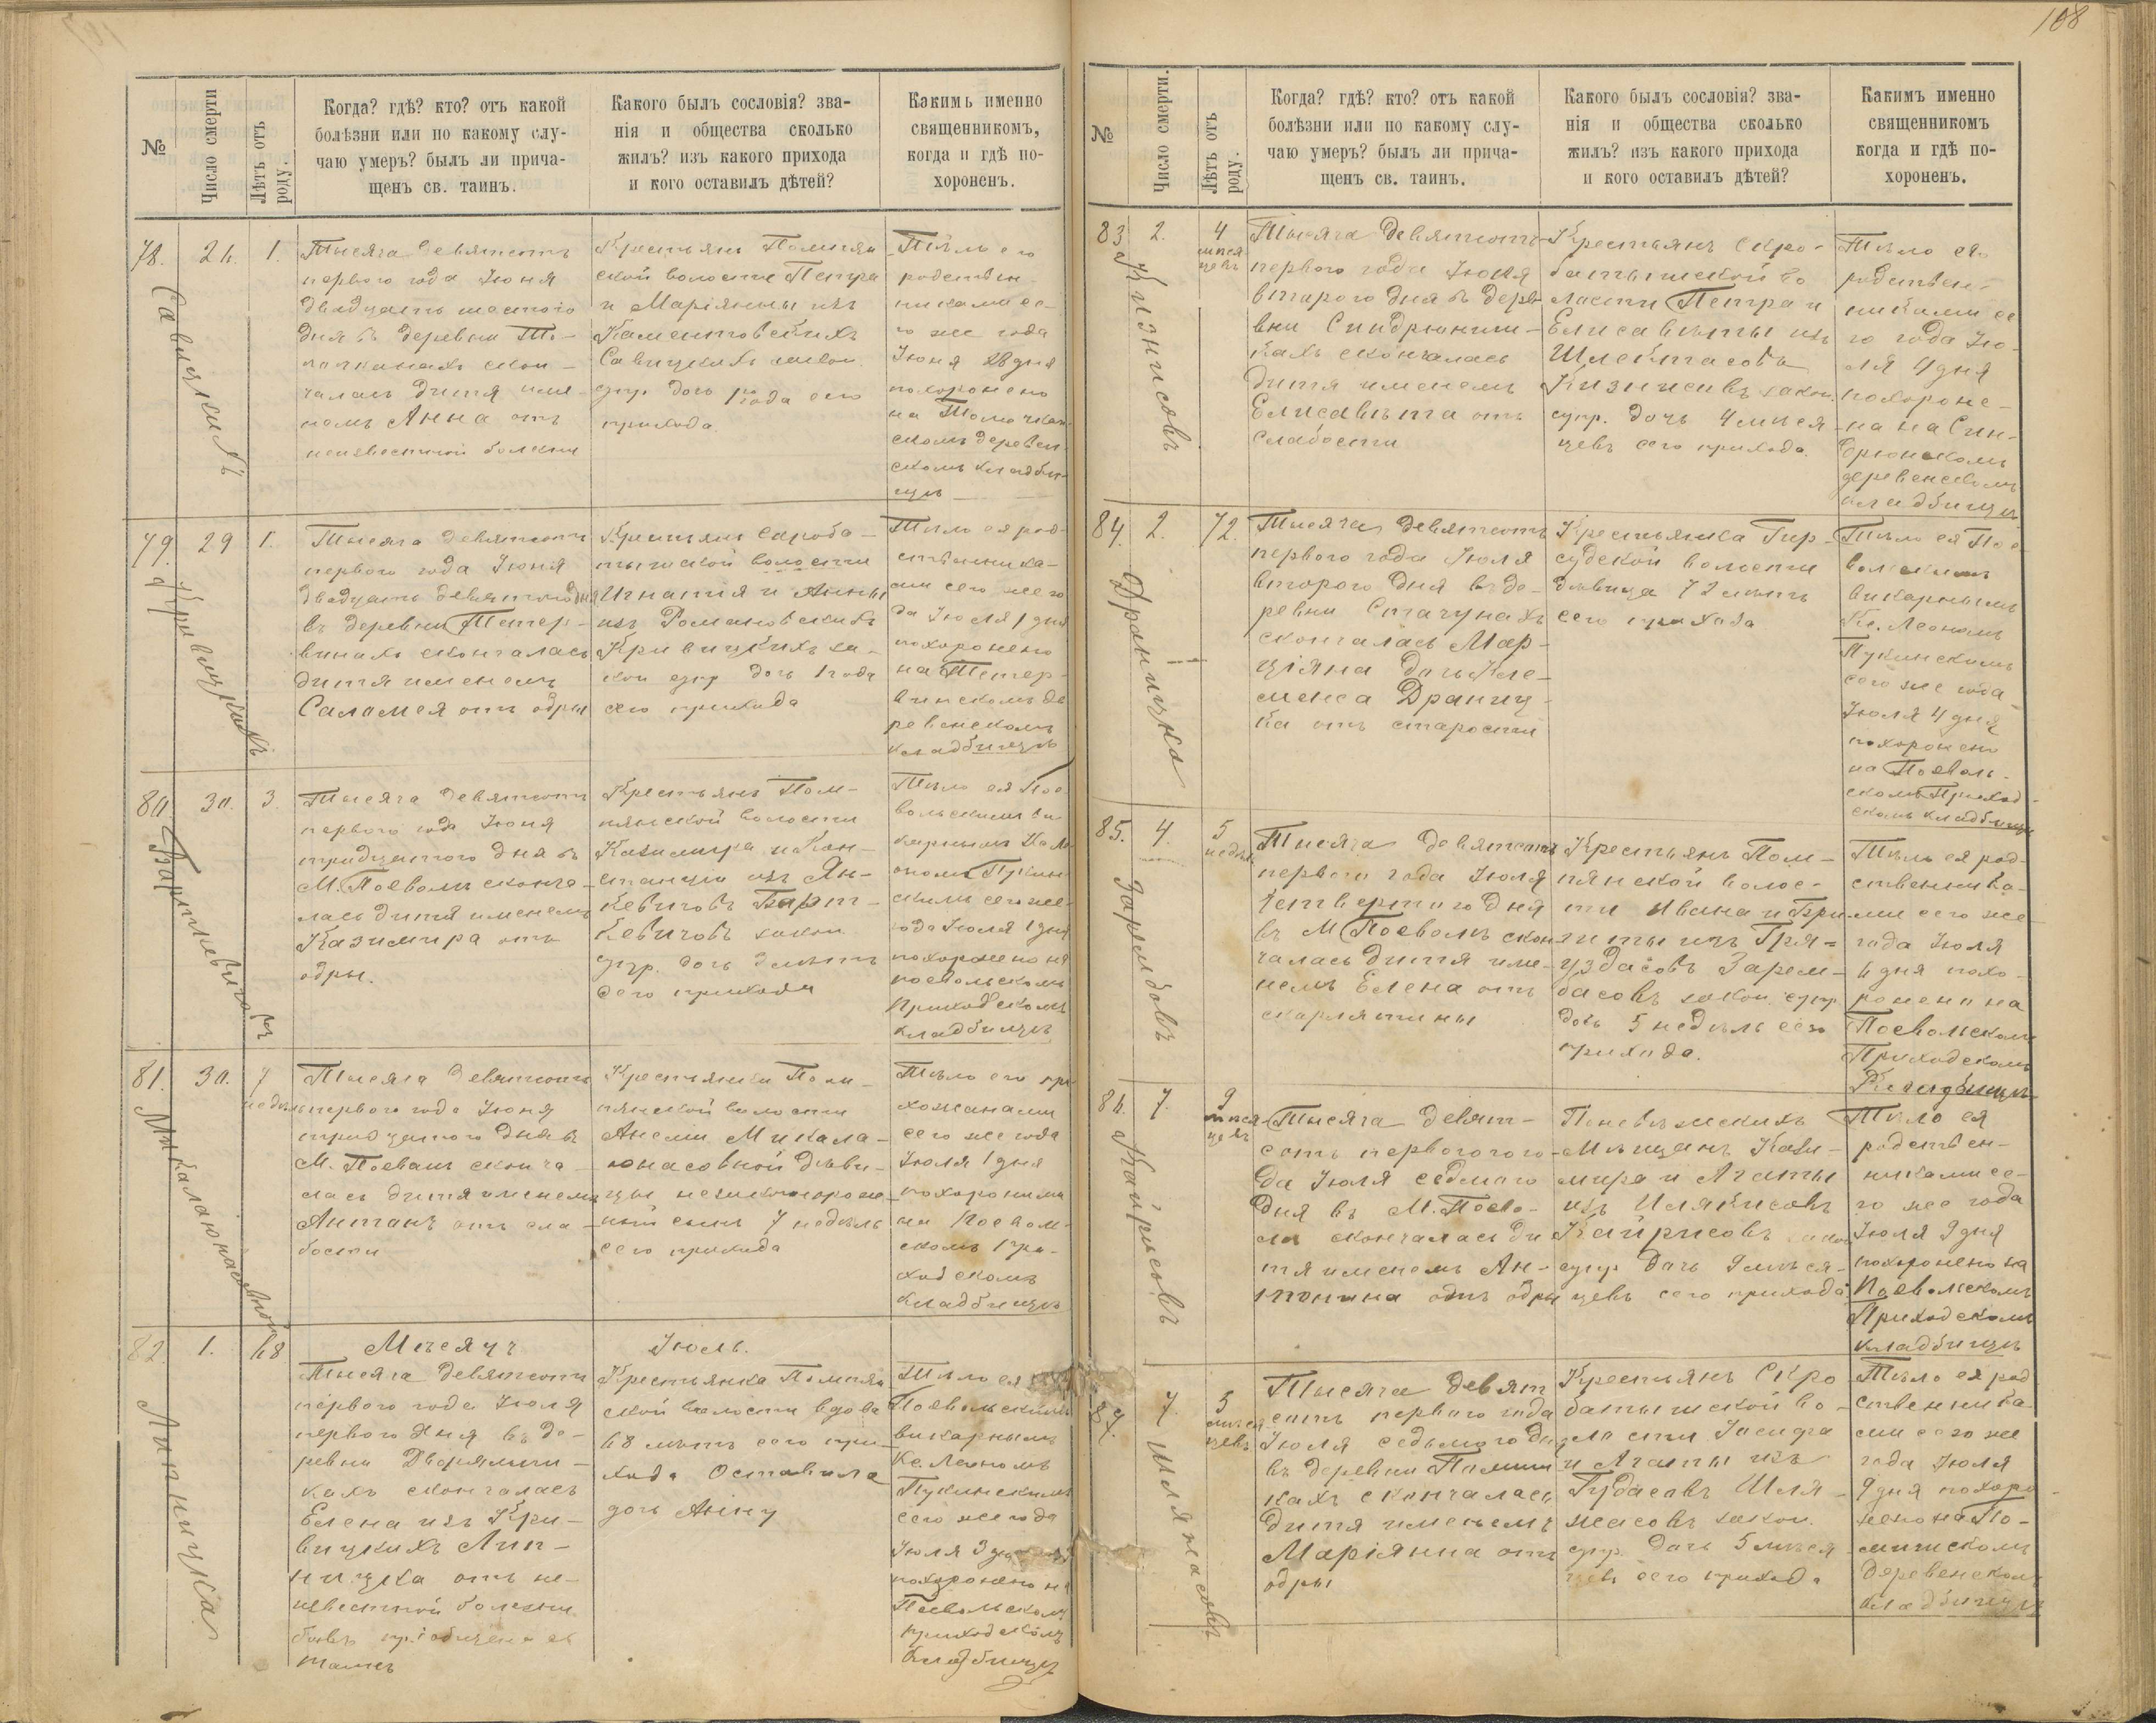 108
№
Число смерти
Лѣтъ отъ роду.
Когда? гдѣ? кто? отъ какой
болѣзни или по какому слу-
чаю умеръ? былъ ли прича-
щенъ св. таинъ.
Какого былъ сословія? зва-
нія и общества сколько
жилъ? изъ какого прихода
и кого оставилъ дѣтей?
Какимъ именно
священникомъ,
когда и гдѣ по-
хороненъ.
78.
26.
1.
Савицкихъ
Тысяча девятсотъ
перваго года Юня
двадцать шестого
дня въ деревни То-
скон-
чалась дитя име-
немъ Анна отъ
неизвестной болезни
Крестьянъ Помпян
ской волости Петра
и Маріянны изъ
Савицкихъ закон
супр дочь 1 года сего
прихода.
Тѣло его
родствен
никами се-
го же года
Юня 28 дня
похоронено
на
скомъ деревен
скомъ кладби-
щѣ
79.
29
1.
Кривицкихъ
Тысяча девятсотъ
перваго года Юня
двадцать девятого дня
въ деревни Тетер-
винахъ скончалась
дитя именемъ
Саломея отъ одры
Крестьянъ Скроба-
тышской волости
Игнатія и Анны
изъ Романовскихъ
Кривицкихъ за-
кон супр дочь 1 года
сего прихода
Тѣло ея род-
ственника-
ми сего же го
да Юля 1 дня
похоронено
на Тетер-
винскомъ де
ревенскомъ
кладбищѣ
80.
30.
3.
Барткевичовъ
Тысяча девятсотъ
перваго года Юня
тридцатого дня въ
М. Поеволь сконча-
лась дитя именемъ
Казимира отъ
одры.
Крестьянъ Пом-
пянской волости
Казимира и Кон-
станции изъ Ян-
кевичовъ Барт-
кевичовъ закон
супр. дочь 3 лѣтъ
сего прихода
Тѣло ея Пое
вольскимъ ви-
карнымъ Кс Ле
ономъ Пукин
скимъ сего же
года Юля 1 дня
похоронено на
Поевольскомъ
Приходскомъ
кладбищѣ
81.
30.
7
недѣль
Микалаюнасовной
Тысяча девятсотъ
перваго года Юня
тридцатого дня въ
М. Поеволь сконча-
лась дитя именемъ
Антонъ отъ сла-
бости
Крестьянки Пом-
пянской волости
Анели Микала-
юнасовной дѣви-
цы незаконнорож-
ный сынъ 7 недѣль
сего прихода
Тѣло его при
хожанами
сего же года
Юля 1 дня
похоронено
на Поеволь-
скомъ При-
ходскомъ
кладбищѣ
82.
1.
68
Липницка
Мѣсяцъ
Юль.
Тысяча девятсотъ
перваго года Юля
перваго дня въ де-
ревни Дворялиш-
кахъ скончалась
Елена изъ Кри-
вицкихъ Лип-
ницка отъ не-
известной болезни
бывъ пріобщена св
таинъ
Крестьянка Помпян
ской волости вдова
68 лѣтъ сего при-
хода Оставила
дочь Анну
Тѣло ея
Поевольскимъ
викарнымъ
Кс. Леономъ
Пукинскимъ
сего же года
Юля 3 дня
похоронено на
Поевольскомъ
приходскомъ
кладбищѣ
№
Число смерти.
Лѣтъ отъ роду.
Когда? гдѣ? кто? отъ какой
болѣзни или по какому слу-
чаю умеръ? былъ ли прича-
щенъ св. таинъ.
Какого былъ сословія? зва-
нія и общества сколько
жилъ? изъ какого прихода
и кого оставилъ дѣтей?
Какимъ именно
священникомъ
когда и гдѣ по-
хороненъ.
83
2.
4
мѣся
цевъ
Кизнисовъ
Тысяча девятсотъ
перваго года Юля
второго дня въ дере
вни Синдрюниш-
кахъ скончалась
дитя именемъ
Елисавѣта отъ
слабости
Крестьянъ Скро-
батышской во
лости Петра и
Елисавѣты изъ
Шлектасовъ
Кизнисовъ закон.
супр. дочь 4 мѣся
цевъ сего прихода.
Тѣло ея
родствен-
никами се
го года Ю-
ля 4 дня
похороне-
на на Син-
дрюнскомъ
деревенскомъ
кладбищѣ
84.
2.
72.
Драницка
Тысяча девятсотъ
перваго года Юля
второго дня въ де-
ревни Стачунахъ
скончалась Мар-
ціяна дочь Кле-
менса Драниц-
ка отъ старости
Крестьянка Гир-
судской волости
дѣвица 72 лѣтъ
сего прихода
Тѣло ея Пое
вольскимъ
викарнымъ
Кс. Леономъ
Пукинскимъ
сего же года
Юля 4 дня
похоронено
на Поеволь-
скомъ Приход-
скомъ кладбищѣ
85.
4.
5
недѣль
Зарембовъ
Тысяча девятсотъ
перваго года Юля
четвертого дня
въ М Поеволь скон
чалась дитя име-
немъ Елена отъ
скарлятины
Крестьянъ Пом-
пянской волос-
ти Ивана и Бри
гиты изъ Гри-
уздасовъ Зарем-
басовъ закон. супр
дочь 5 недѣль сего
прихода.
Тѣло ея род-
ственника-
ми сего же
года Юля
6 дня похо-
ронено на
Поевольскомъ
Приходскомъ
Кладбищѣ
86.
7.
9
мѣся
цевъ
Кайрисовъ
Тысяча девят-
сотъ перваго го-
да Юля седмого
дня въ М. Поево-
ля скончалась ди
тя именемъ Ан-
тонина отъ одры
Поневѣжскихъ
Мѣщанъ Кази-
мира и Агаты
изъ Илякисовъ
Кайрисовъ закон
супр дочь 9 мѣся-
цевъ сего прихода
Тѣло ея
родствен-
никами се-
го же года
Юля 9 дня
похоронено на
Поевольскомъ
Приходскомъ
кладбищѣ
87.
7
5
мѣся
цевъ
Шляжасовъ
Тысяча девят
сотъ перваго года
Юля седьмого дня
въ деревни Помиш
кахъ скончалась
дитя именемъ
Маріянна отъ
одры
Крестьянъ Скро
батышской во-
лости Іосифа
и Агаты изъ
Гудасовъ Шля-
жасовъ закон.
супр. дочь 5 мѣся
цевъ сего прихода
Тѣло ея род
ственника-
ми сего же
года Юля
9 дня похоро-
нено на По-
мишскомъ
деревенскомъ
кладбищѣ